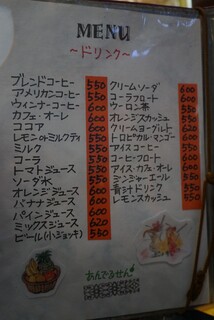 MENU
～ドリンク～
ブレンドコーヒー 550
アメリカンコーヒー 550
ウィンナーコーヒー 600
カフェ・オーレ 600
ココア 600
レモンorミルクティ 550
ミルク 550
コーラ 550
トマトジュース 550
ソーダ水 550
オレンジジュース 600
バナナジュース 600
パインジュース 600
ミックスジュース 620
ビール(小ジョッキ) 550
クリームソーダ 600
コーラフロート 600
ウーロン茶 550
オレンジスカッシュ 550
クリームヨーグルト 620
トロピカルマンゴー 600
アイスコーヒー 550
コーヒーフロート 600
アイス・カフェ・オーレ 600
ジンジャーエール 550
青汁ドリンク 550
レモンスカッシュ 550